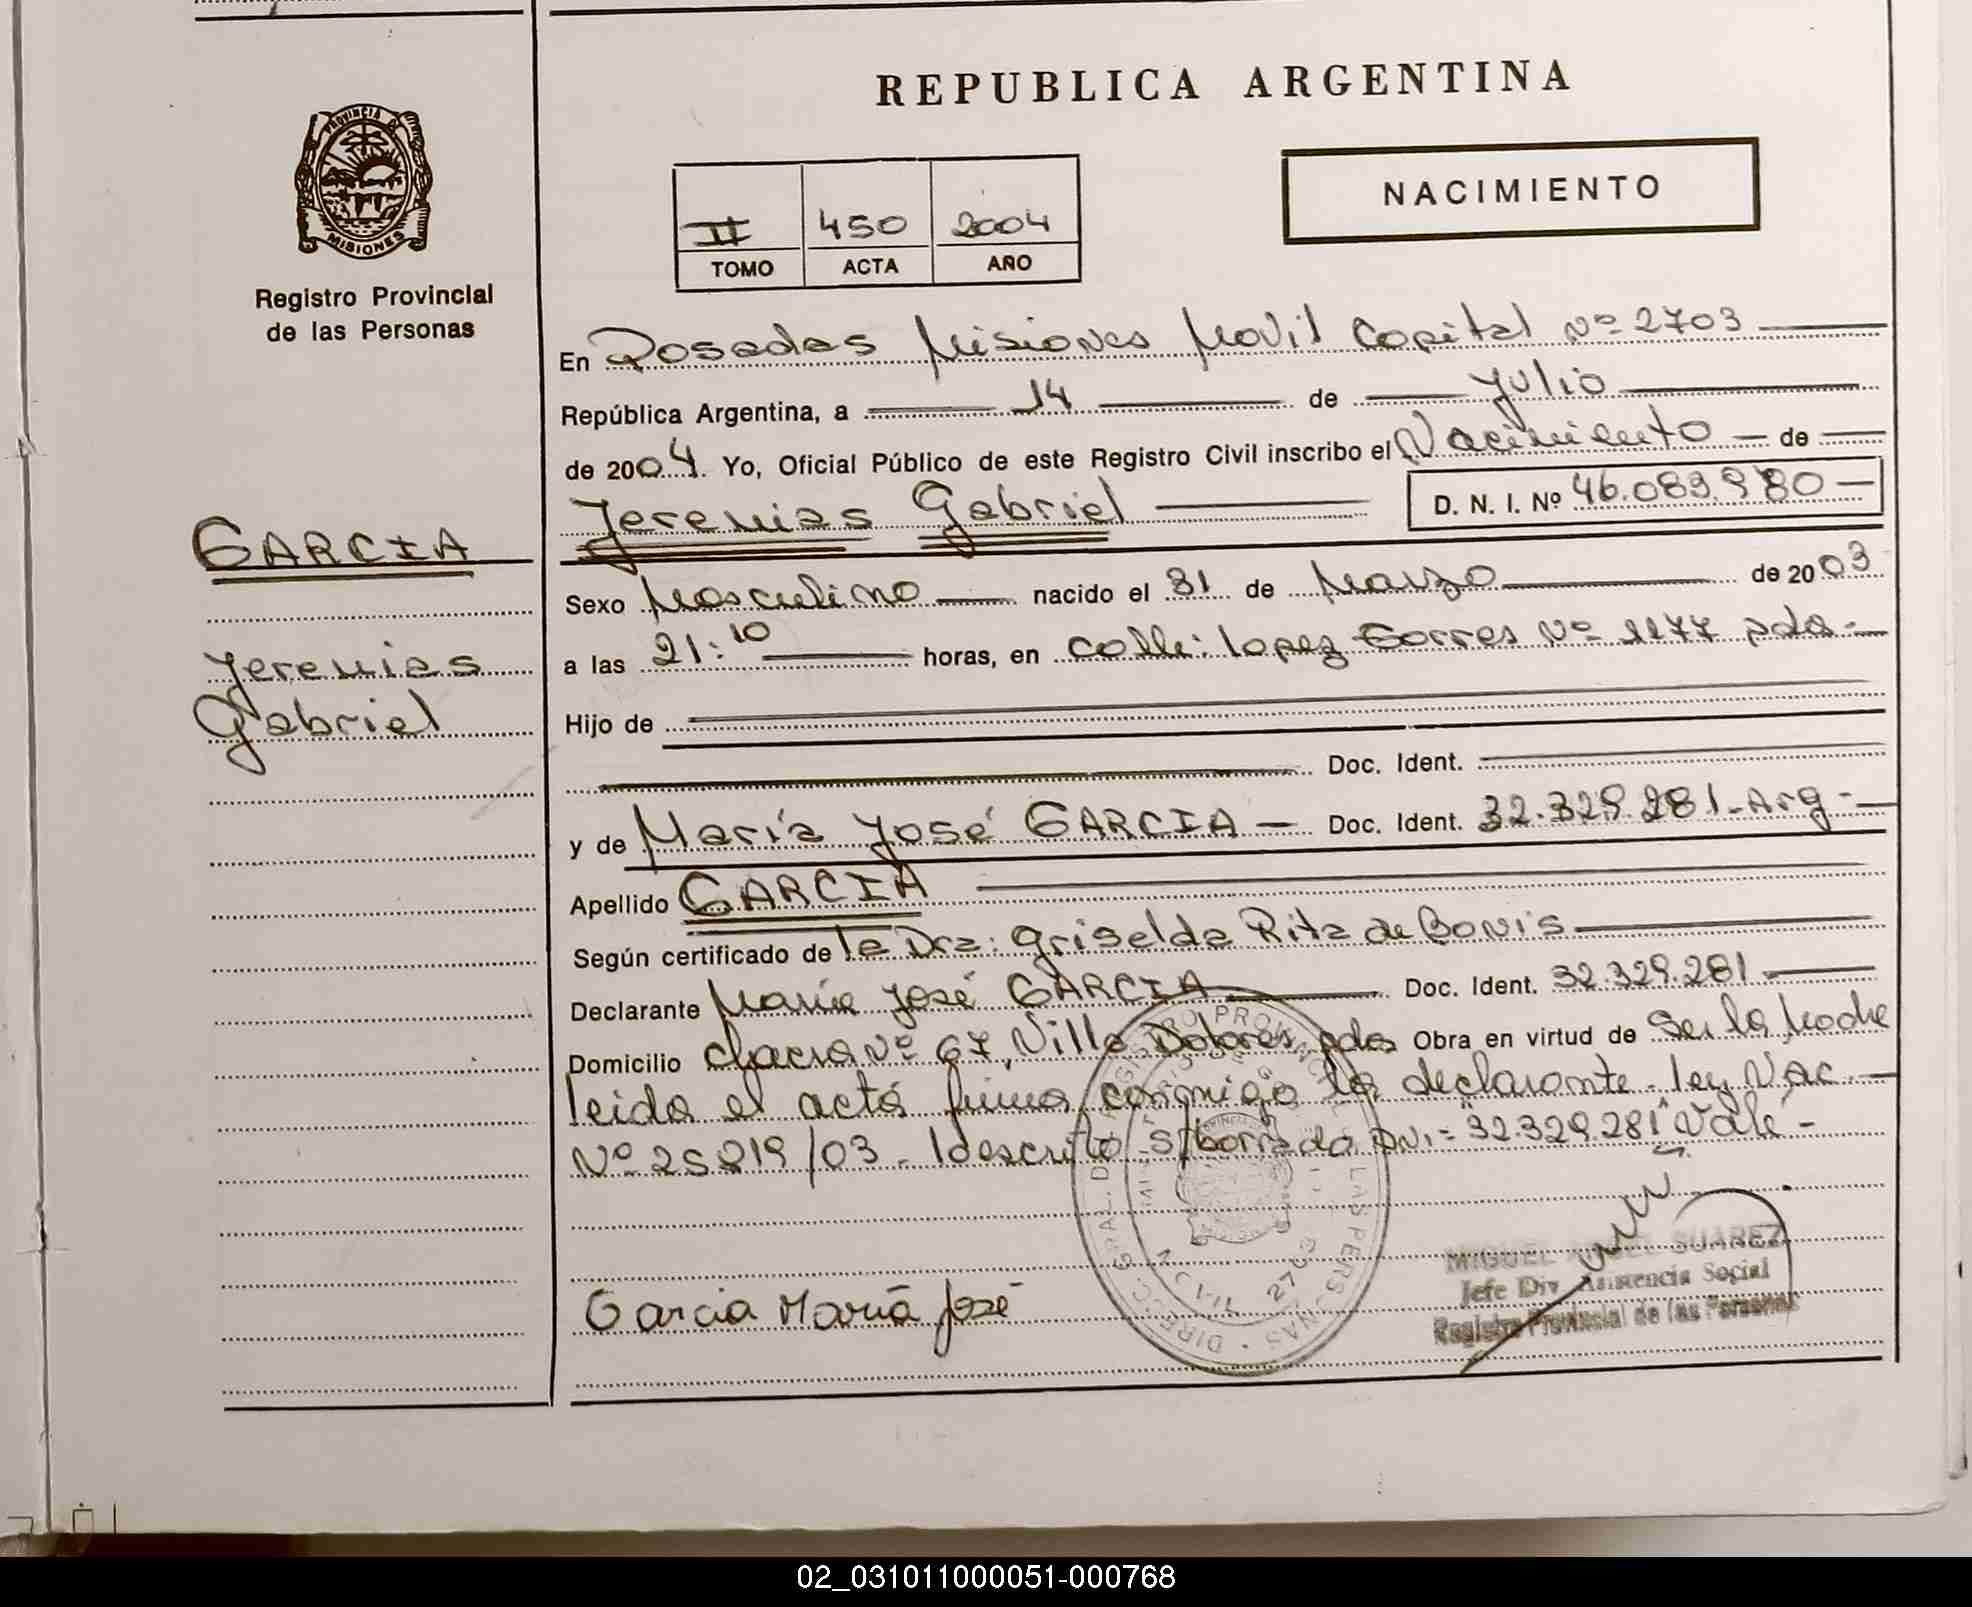 REPUBLICA ARGENTINA
PROVINCIA DE
MISIONES
Registro Provincial
de las Personas
NACIMIENTO
II 450 2004
TOMO ACTA AÑO
En Posadas Misiones Movil Capital Nº 2703
República Argentina, a 14 de Julio
de 2004. Yo, Oficial Público de este Registro Civil inscribo el Nacimiento de
Jeremias Gabriel D. N. I. Nº 46.089.980
GARCIA
Sexo Masculino nacido el 31 de Marzo de 2003
Jeremias
Gabriel
a las 21:10 horas, en calle: Lopez Torres Nº 1177 pdas.
Hijo de
Doc. Ident.
y de María José GARCIA Doc. Ident. 32.329.281-Arg-
Apellido GARCIA
Según certificado de la Dra: Griselda Rita de Bonis
Declarante María José GARCIA Doc. Ident. 32.329.281
Domicilio chacra Nº 67, Villa Dolores pdas Obra en virtud de Ser la Madre
leida el acta firma conmigo la declarante. ley Nac.
Nº 25819/03 - Idescrito s/borrado DNI = "32.329.281" Vale -
Garcia María José
MIGUEL SUAREZ
Jefe Div Asistencia Social
Registro Provincial de las Personas
02_031011000051-000768